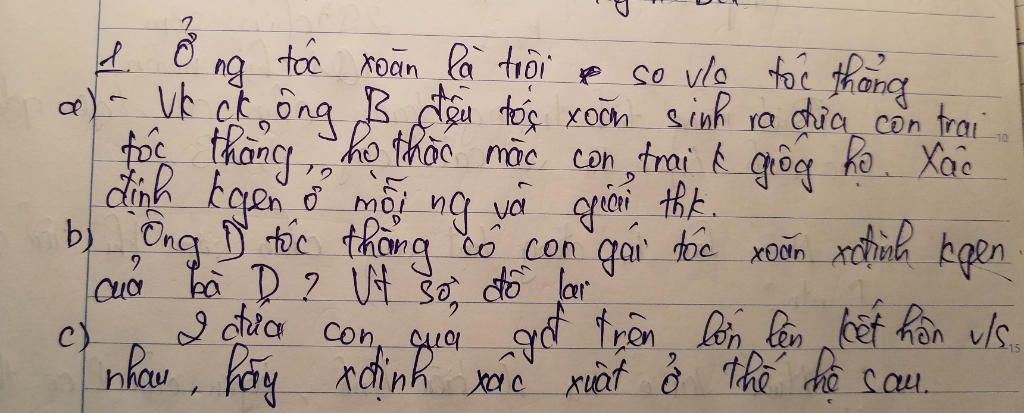 1. Ở ng tóc xoăn là trội so v/s tóc thẳng
a) - Vk ck ông B đều tóc xoăn sinh ra đứa con trai
tóc thẳng, họ thắc mắc con trai k giống họ. Xác
định kgen ở mỗi ng và giải thk.
b) Ông D tóc thẳng có con gái tóc xoăn xđịnh kgen
của bà D? Vt sơ đồ lai
c) 2 đứa con của gđ trên lớn lên kết hôn v/s
nhau, hãy xđịnh xác xuất ở thế hệ sau.